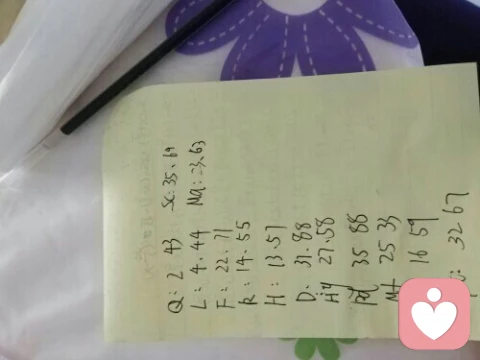 Q: 2.43 Sc: 35.69
L: 4.44 Ma: 23.63
F: 22.71
K: 14.55
H: 13.57
D: 31.88
Hy 27.58
Pd 35 88
Mf 25 33
16 59
32 67